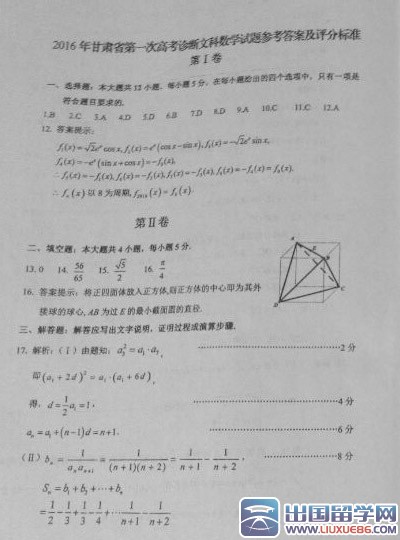 2016年甘肃省第一次高考诊断文科数学试题参考答案及评分标准
第Ⅰ卷
一、选择题：本大题共12小题，每小题5分，在每小题给出的四个选项中，只有一项是
符合题目要求的．
1.B 2.C 3.A 4.D 5.B 6.D 7.D 8.D 9.A 10.C 11.C 12.A
12. 答案提示：
f₁(x)=√2eˣcosx, f₂(x)=eˣ(cosx−sinx), f₃(x)=−√2eˣsinx,
f₄(x)=−eˣ(sinx+cosx)=−f₀(x),
∴f₅(x)=−f₁(x), f₆(x)=−f₂(x), f₇(x)=−f₃(x), f₈(x)=−f₄(x)=f₀(x).
∴fₙ(x)以8为周期, f₂₀₁₆(x)=f₀(x).
第Ⅱ卷
二、填空题：本大题共4小题，每小题5分．
13. 0 14. 56/65 15. √5/2 16. π/4
A
E
B
C
D
16. 答案提示：将正四面体放入正方体,则正方体的中心即为其外
接球的球心, AB为过E的最小截面圆的直径.
三、解答题：解答应写出文字说明，证明过程或演算步骤．
17. 解析：（Ⅰ）由题知：a₃²=a₁·a₇, ……2分
即(a₁+2d)²=a₁·(a₁+6d),
得, d=½a₁=1, ……4分
aₙ=a₁+(n−1)d=n+1. ……6分
（Ⅱ）bₙ=1/(aₙaₙ₊₁)=1/((n+1)(n+2))=1/(n+1)−1/(n+2), ……8分
Sₙ=b₁+b₂+…+bₙ
=1/2−1/3+1/3−1/4+…+1/(n+1)−1/(n+2)
出国留学网
WWW.LIUXUE86.COM